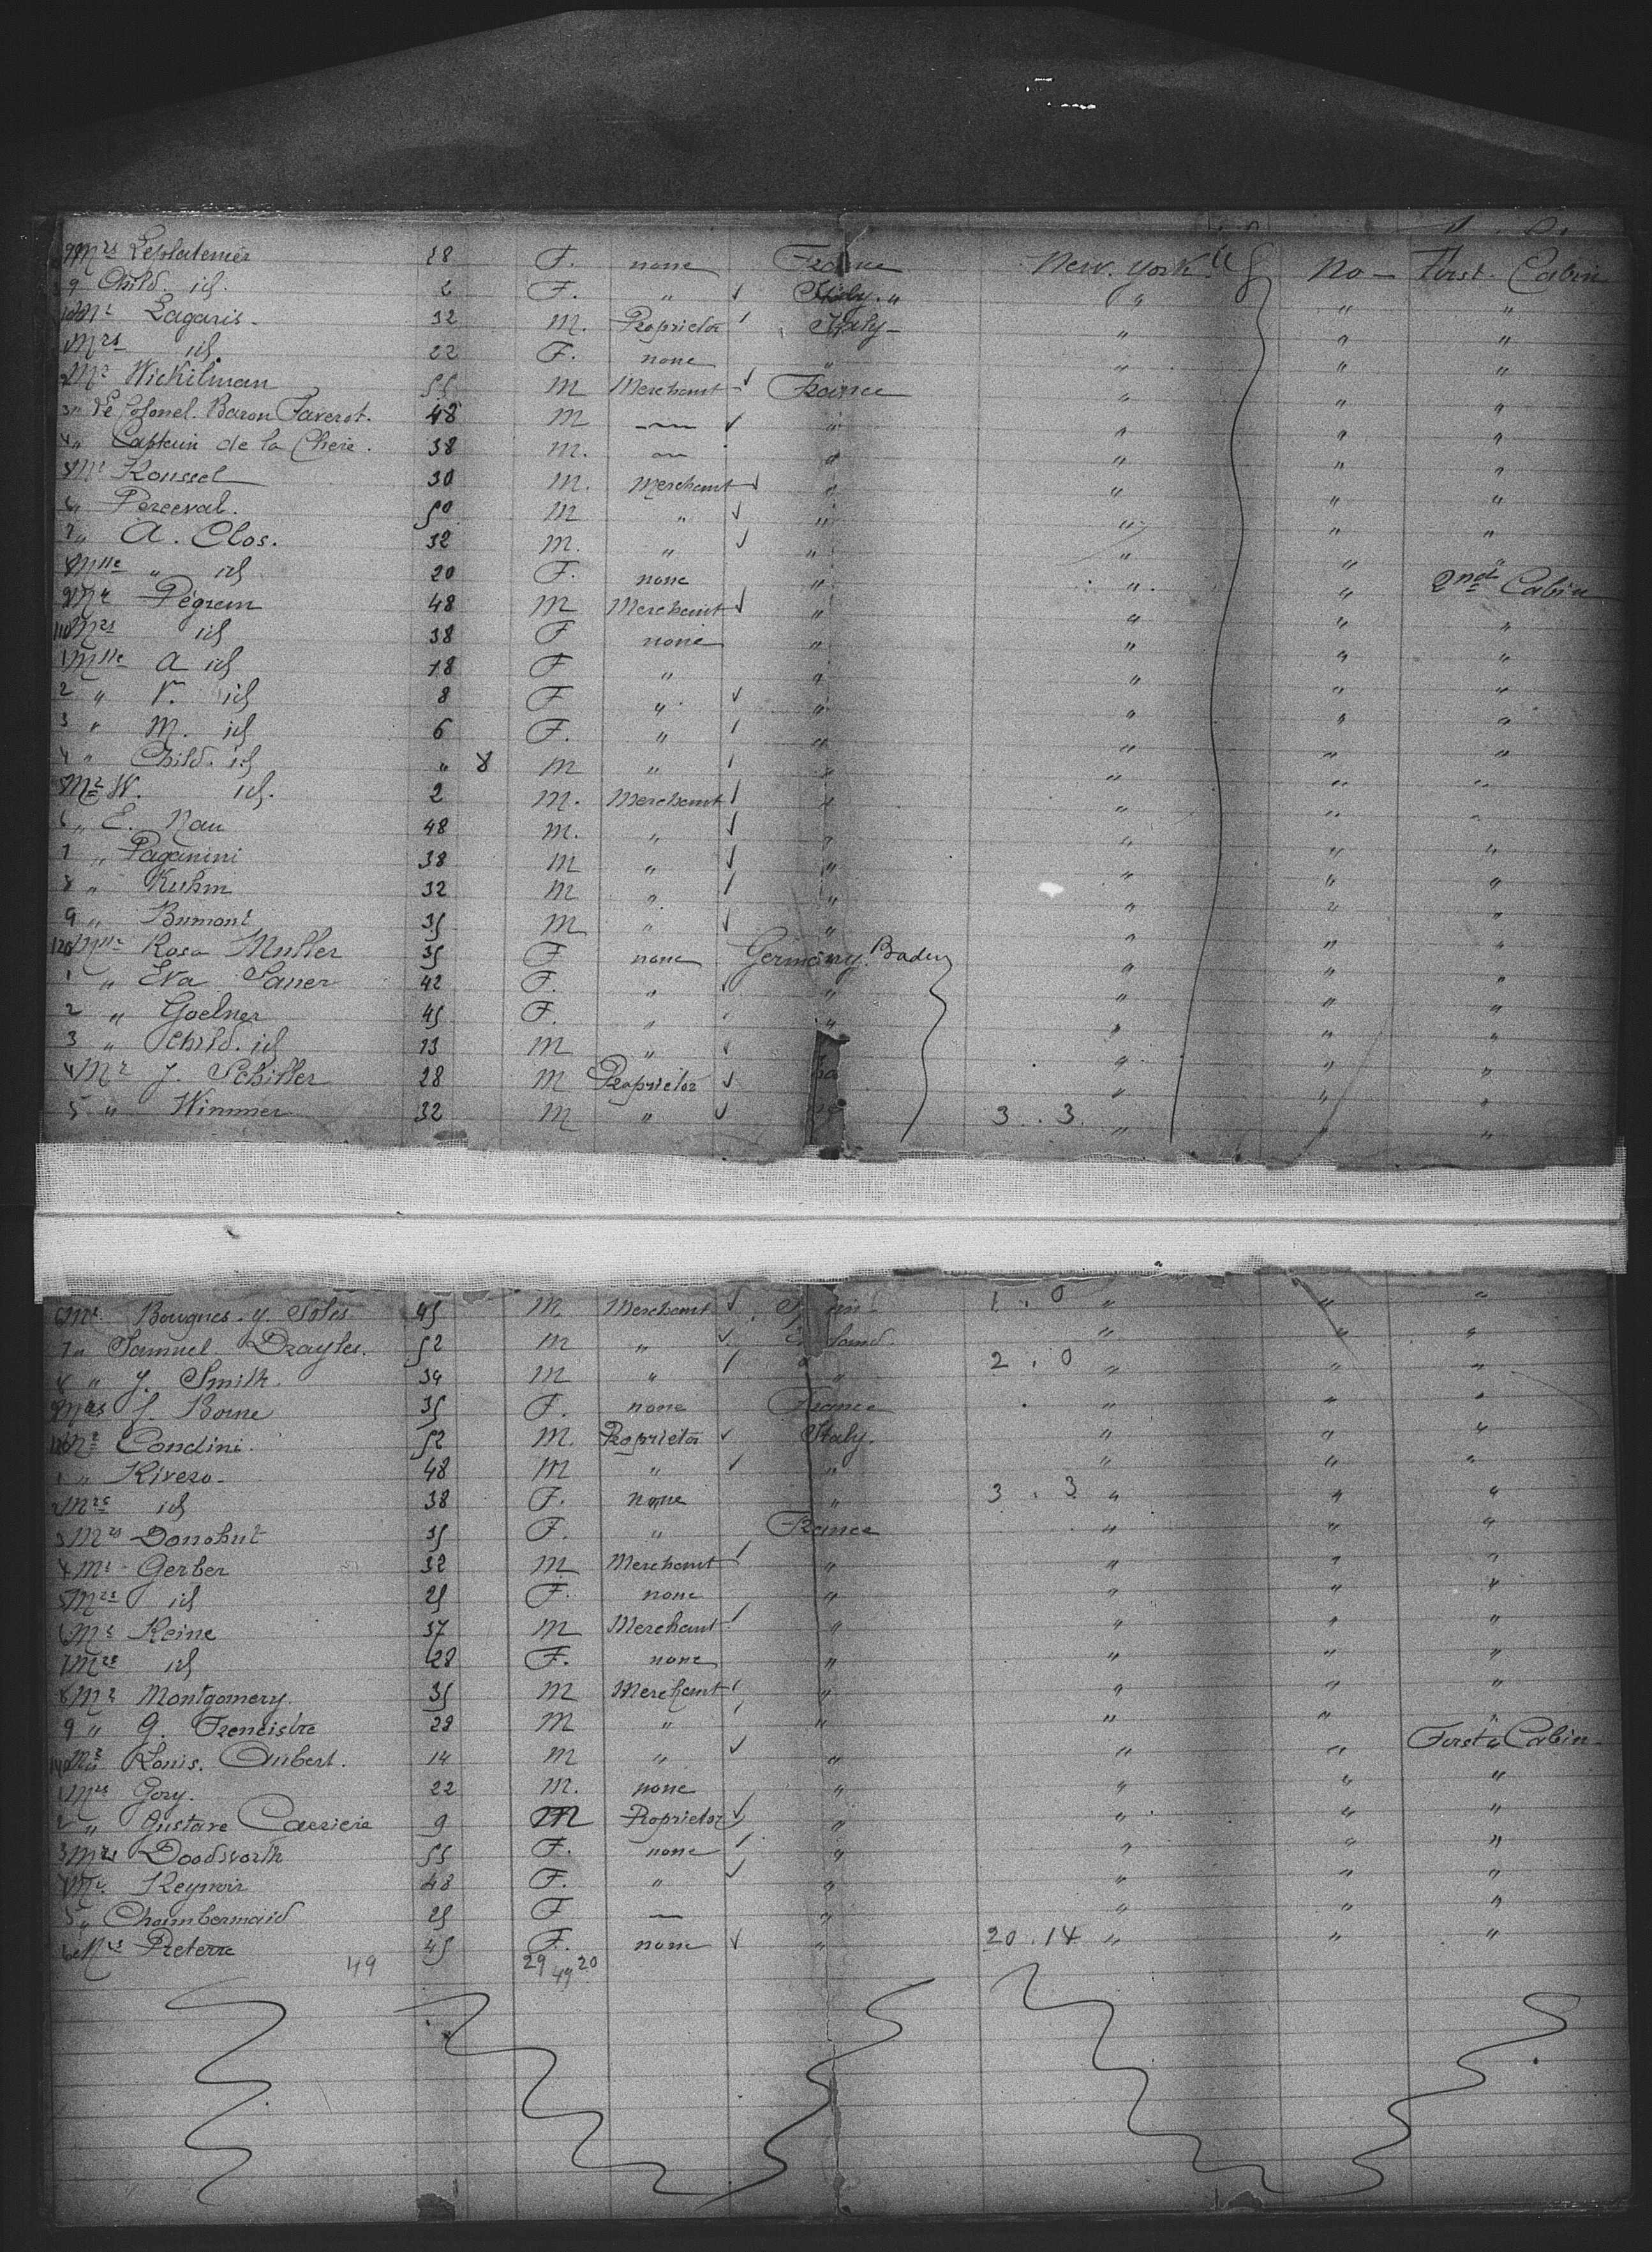 Mrs Leplatenier 28 F. none France New York US no — First Cabin
9 Child. id. 2 F. " " " " "
Mr Lagaris 32 M. Proprietor Italy " " "
1 Mrs id. 22 F. none " " " "
2 Mr Wickilman 55 M Merchant France " " "
3 " Le Colonel Baron Faverot. 48 M — " " " "
4 " Captain de la Chere. 38 M. — " " " "
5 Mr Roussel 30 M. Merchant " " " "
6 " Perceval. 50 M " " " " "
7 " A. Clos. 32 M. " " " " "
8 Mlle " id 20 F. none " " " 2nd Cabin
9 Mr Pégrem 48 M Merchant " " " "
110 Mrs id 38 F none " " " "
1 Mlle A id 18 F " " " " "
2 " V. id 8 F " " " " "
3 " M. id 6 F. " " " " "
4 " Child. id " 8 M " " " " "
5 Mr W. id. 2 M. Merchant " " " "
6 " E. Nau 48 M. " " " " "
7 " Paganini 38 M " " " " "
8 " Kuhm 32 M " " " " "
9 " Bumont 35 M " " " " "
120 Mlle Rosa Muller 35 F none Germany. Baden " " "
1 " Eva Sauer 42 F. " " " " "
2 " Goelner 45 F. " " " " "
3 " Child. id 13 M " " " "
4 Mr J. Schiller 28 M Proprietor " " "
5 " Wimmer 32 M " 3 . 3 " " "
6 Mr. Bougnes. y. Soles 45 M Merchant 1 . 0 " " "
7 " Samuel Drayler. 52 M " " " "
8 " J. Smith. 34 M " " 2 . 0 " " "
9 Mrs J. Borne 35 F. none France " " "
Mr Condini. 52 M. Proprietor Italy. " " "
1 " Rivero 48 M " " " " "
2 Mrs id 38 F. none " 3 . 3 " " "
3 Mrs Donohut 35 F. " France " " "
4 Mr Gerber 32 M Merchant " " " "
5 Mrs id 25 F. none " " " "
6 Mr Reine 37 M Merchant " " " "
7 Mrs id 28 F. none " " " "
8 Mr Montgomery. 35 M Merchant " " " "
9 " G. 28 M " " " " "
140 Mr Louis. Aubert. 14 M " " " " First Cabin
1 Mrs Gory. 22 M. none " " " "
2 " Gustave Carriere 9 M Proprietor " " " "
3 Mrs Doodsworth 55 F. none " " " "
4 Reynoir 48 F. " " " " "
5 " Chambermaid 25 F — " " " "
6 Preterre 45 F. none " 20 . 14 " " "
49 29 49 20